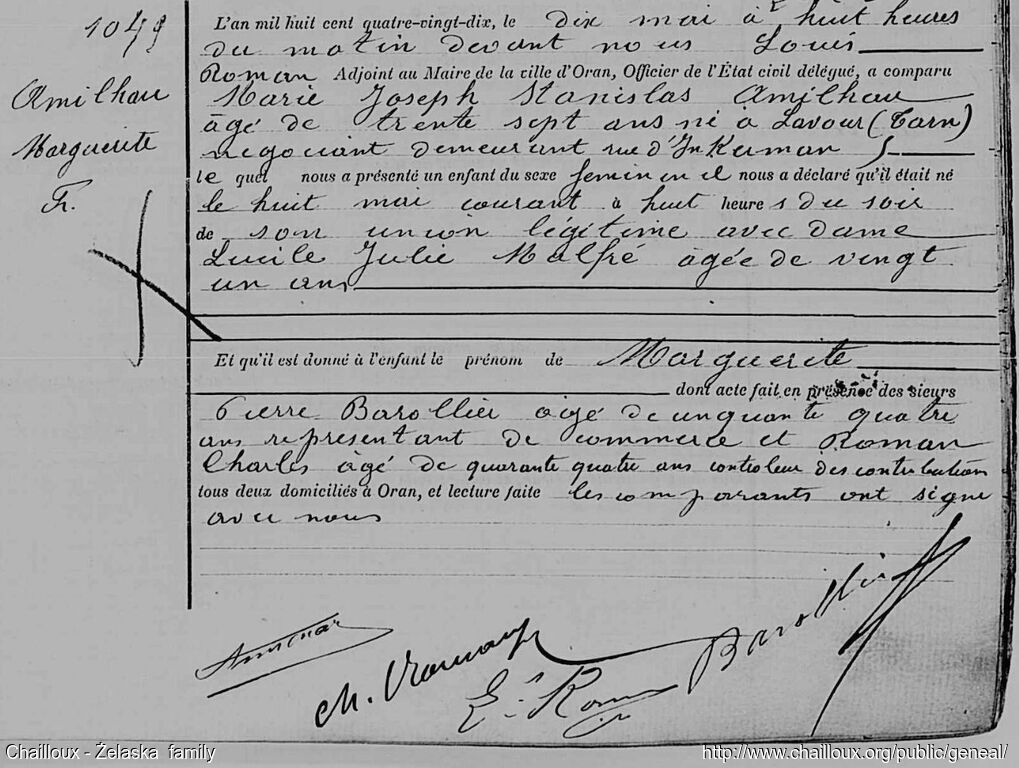 1049
Amilhau
Marguerite
Fr.
L'an mil huit cent quatre-vingt-dix, le dix mai à huit heures
du matin devant nous Louis
Roman Adjoint au Maire de la ville d'Oran, Officier de l'État civil délégué, a comparu
Marie Joseph Stanislas Amilhau
âgé de trente sept ans né à Lavour (Tarn)
négociant demeurant rue d'Inkerman
le quel nous a présenté un enfant du sexe féminin il nous a déclaré qu'il était né
le huit mai courant à huit heures du soir
de son union légitime avec dame
Lucile Julie Malfré âgée de vingt
un ans
Et qu'il est donné à l'enfant le prénom de Marguerite
dont acte fait en présence des sieurs
Pierre Barollier âgé de cinquante quatre
ans représentant de commerce et Roman
Charles âgé de quarante quatre ans controleur des contribution
tous deux domiciliés à Oran, et lecture faite les comparants ont signé
avec nous
Amilhau
Ch. Roman
Ls. Roman
Barollier
Chailloux - Żelaska family
http://www.chailloux.org/public/geneal/